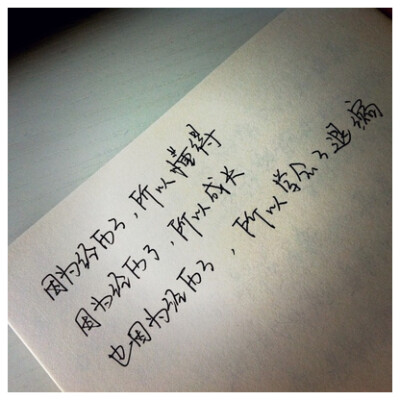 因为经历了，所以懂得
因为经历了，所以成长
也因为经历了，所以学会了退缩